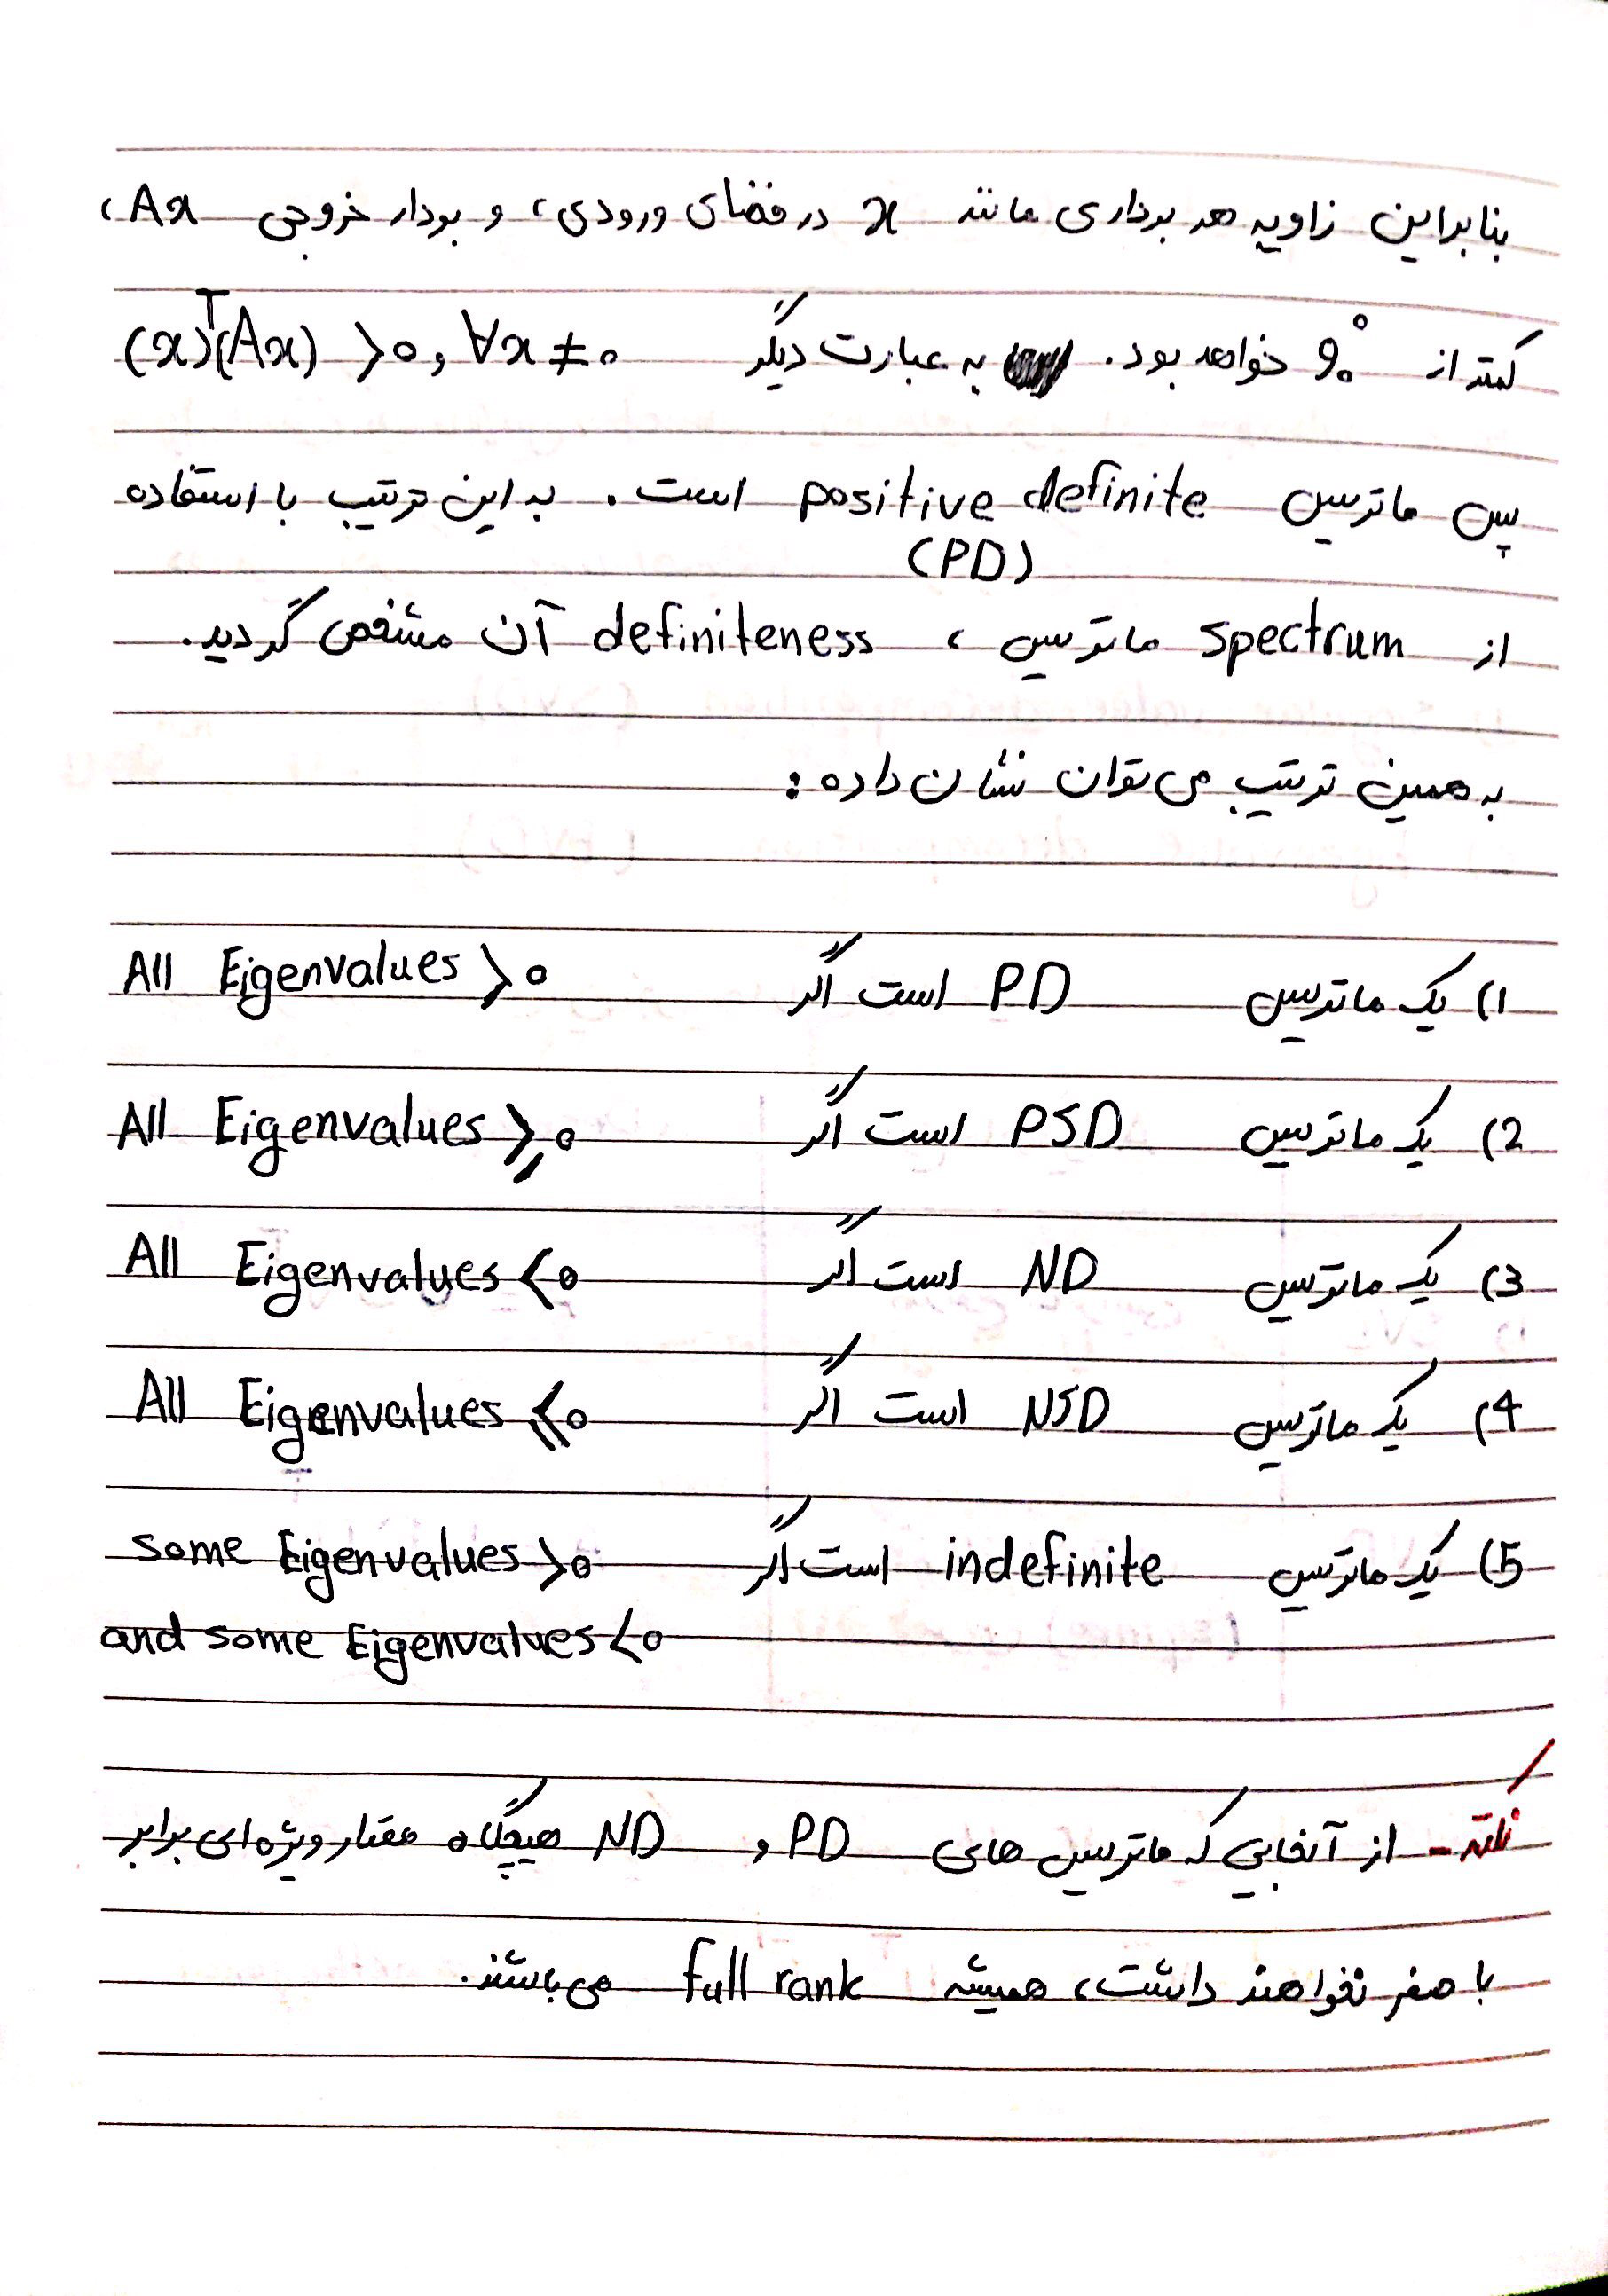 بنابراین زاویه هر برداری مانند x در فضای ورودی، و بردار خروجی Ax،
کمتر از 90° خواهد بود. به عبارت دیگر (x)ᵀ(Ax) > 0, ∀x ≠ 0
پس ماتریس positive definite است. به این ترتیب با استفاده
(PD)
از spectrum ماتریس، definiteness آن مشخص گردید.
به همین ترتیب می توان نشان داده:
1) یک ماتریس PD است اگر All Eigenvalues > 0
2) یک ماتریس PSD است اگر All Eigenvalues ≥ 0
3) یک ماتریس ND است اگر All Eigenvalues < 0
4) یک ماتریس NSD است اگر All Eigenvalues ≤ 0
5) یک ماتریس indefinite است اگر some Eigenvalues > 0
and some Eigenvalues < 0
نکته - از آنجایی که ماتریس های PD و ND هیچگاه مقدار ویژه ای برابر
با صفر نخواهند داشت، همیشه full rank می باشند.